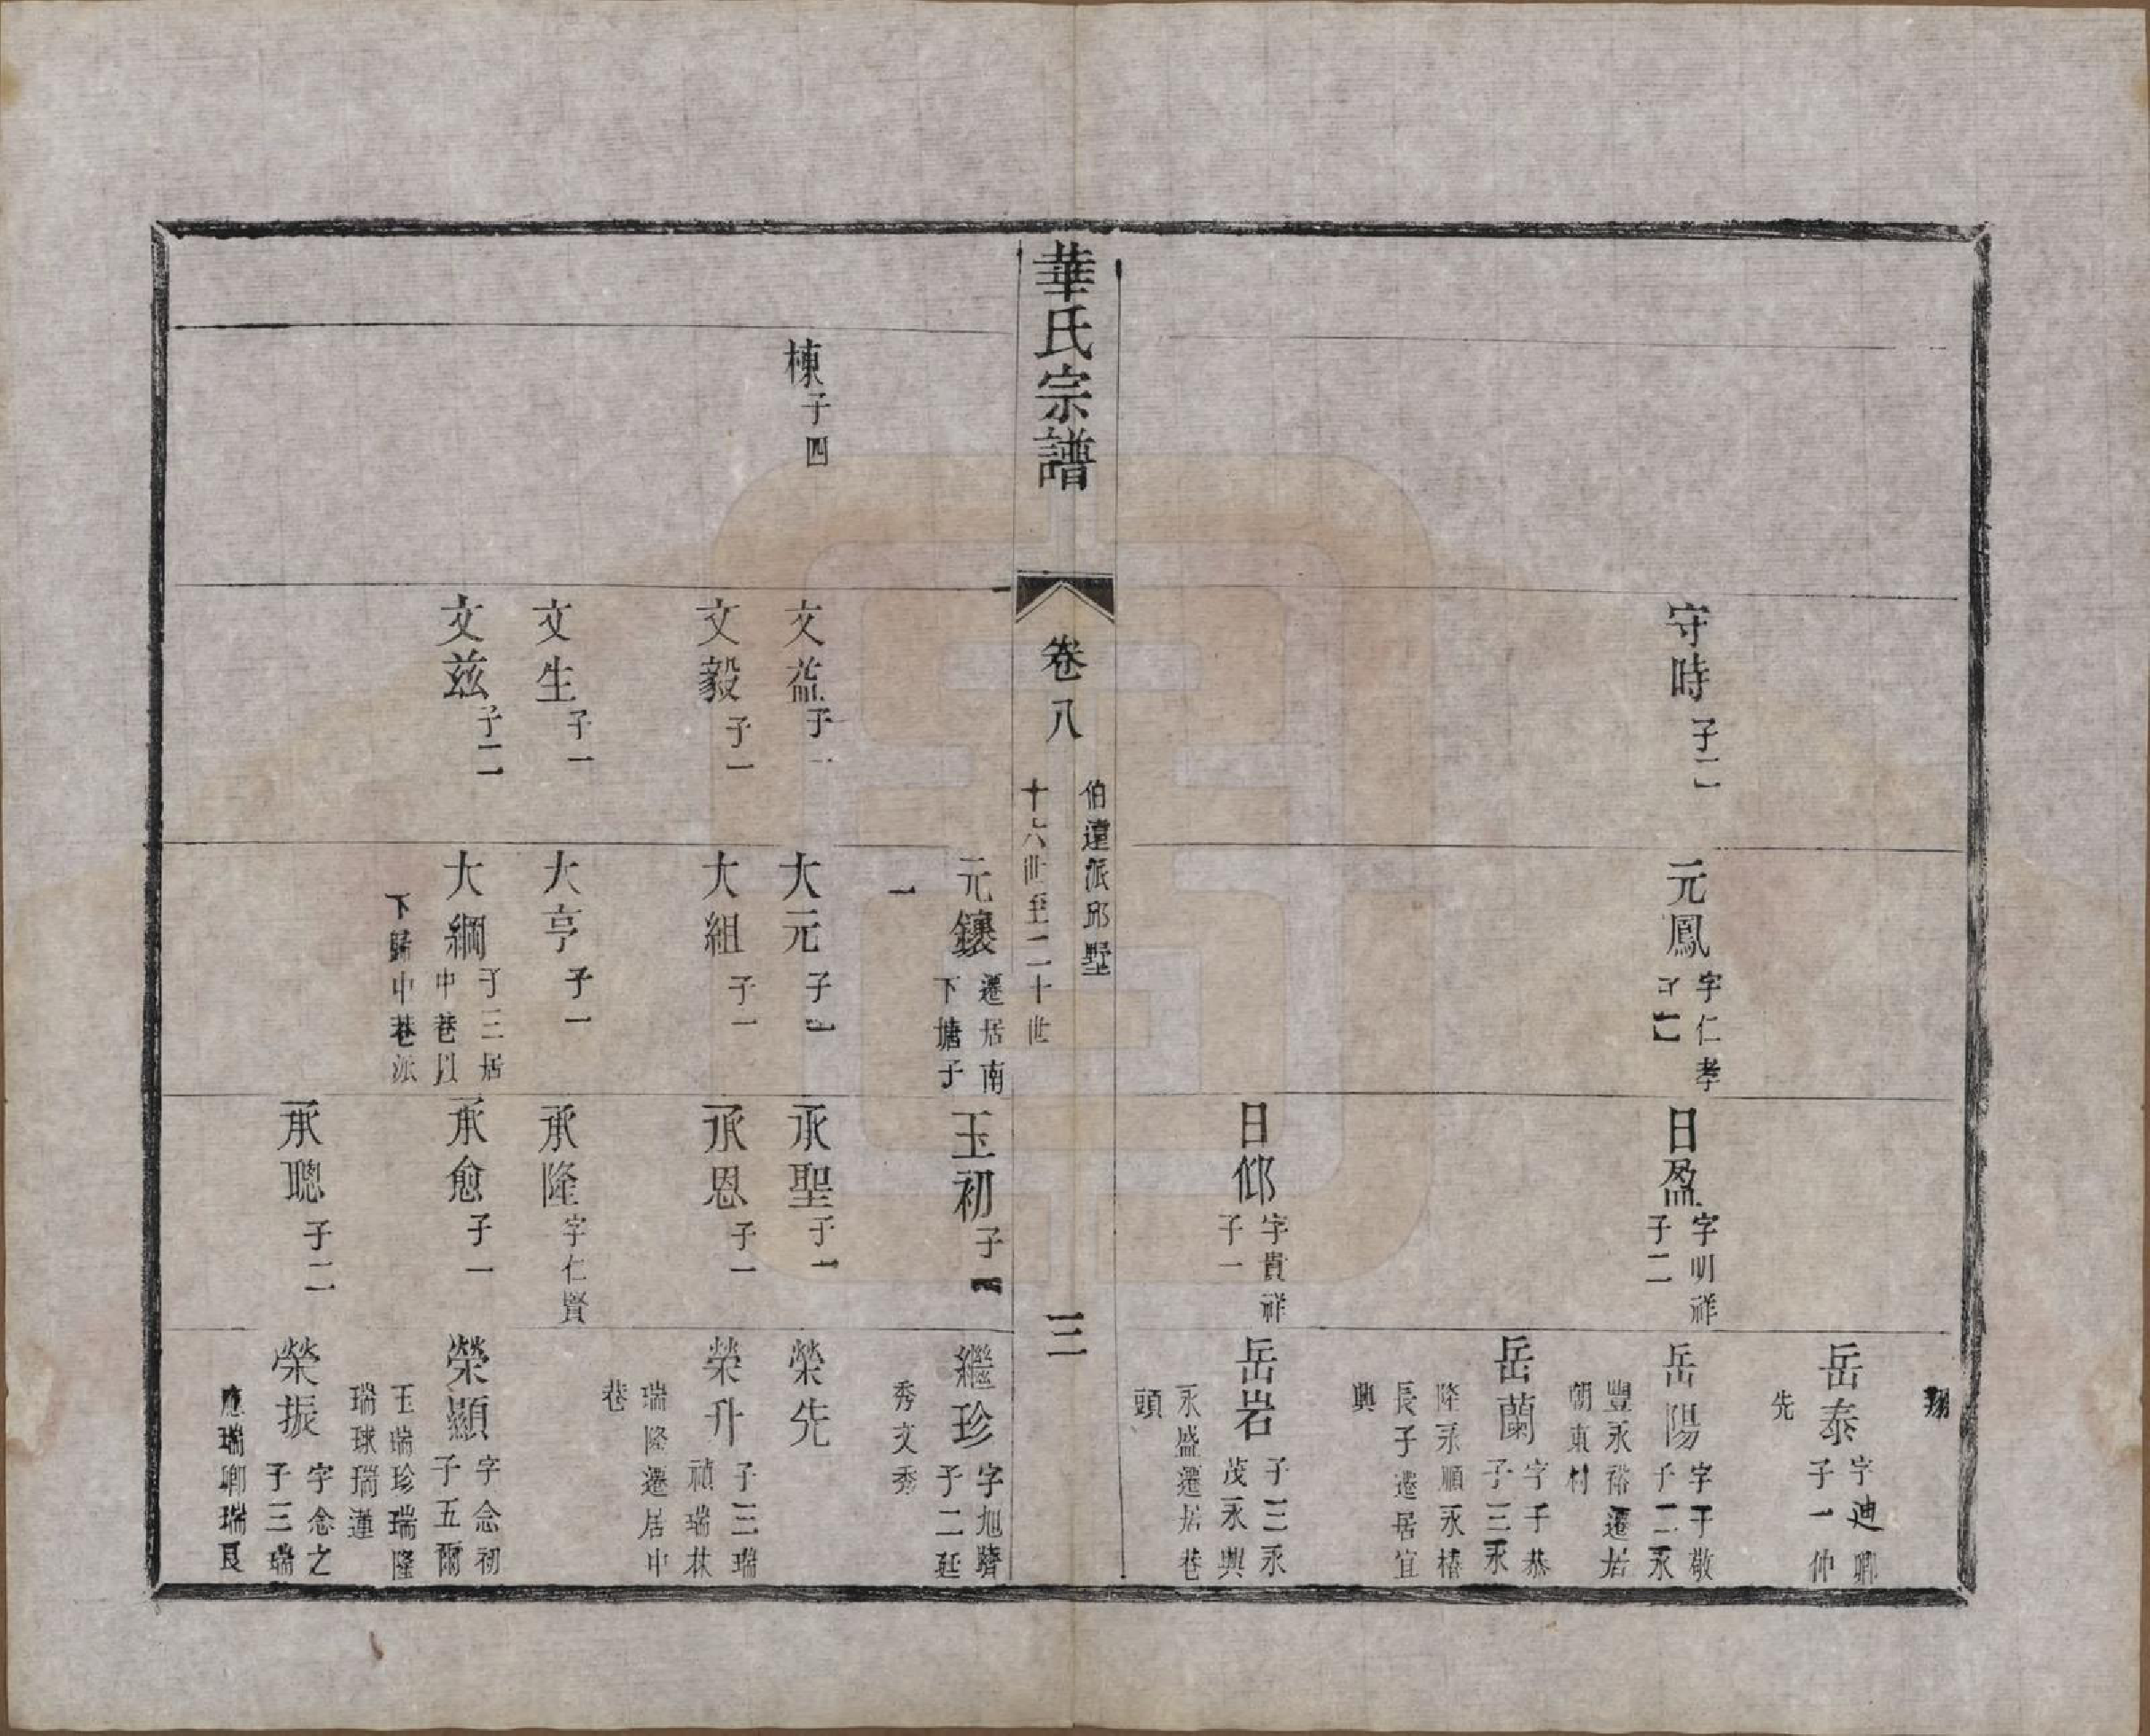 翔
岳泰 字迪卿
子一仲
先
守時 子二
元鳳 字仁孝
子二
日盈 字明祥
子二
岳陽 字于敬
子二永
豐永裕遷居
朝東村
岳蘭 字于恭
子三永
隆永順永椿
長子遷居宜
興
日仰 字貴祥
子一
岳岩 子三永
茂永興
永盛遷居巷
頭
華氏宗譜
卷八
伯遠派邱墅
十六世至二十世
三
元鑲 遷居南
下塘子
一
玉初 子一
繼珍 字旭躋
子二廷
秀文秀
棟 子四
文益 子一
大元 子一
承聖 子一
榮先
文毅 子一
大組 子一
承恩 子一
榮升 子三瑞
禎瑞林
瑞隆遷居中
巷
文生 子一
大亨 子一
承隆 字仁賢
文兹 子二
大綱 子三居
中巷以
下歸中巷派
承愈 子一
榮顯 字念初
子五爾
玉瑞珍瑞隆
瑞球瑞蓮
承聰 子二
榮振 字念之
子三瑞
應瑞卿瑞良